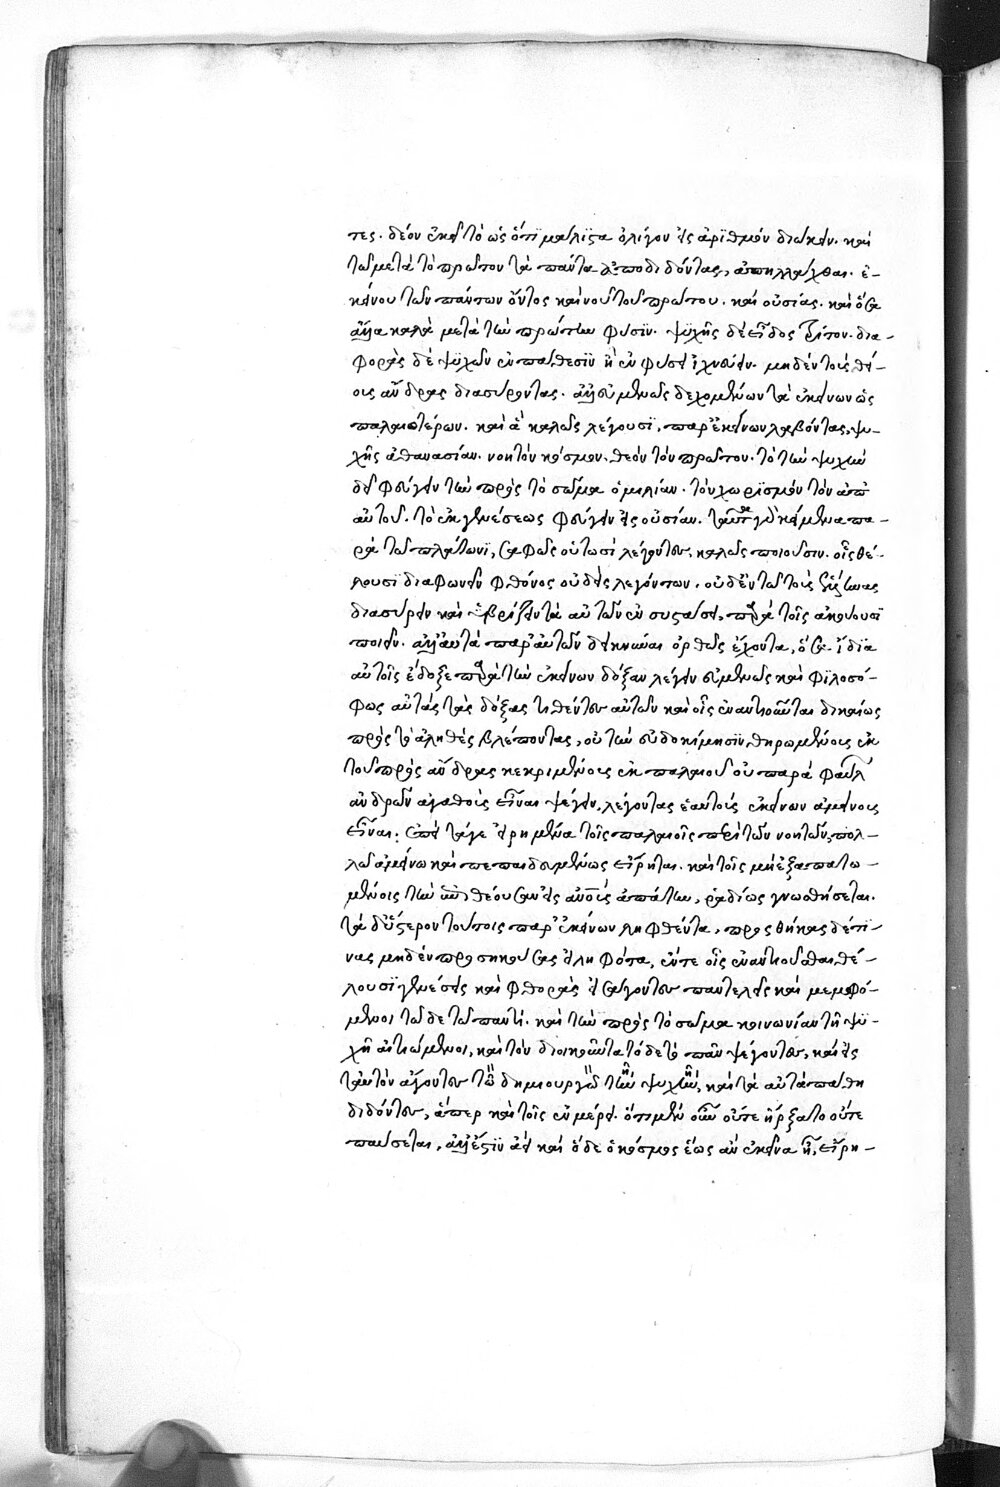 τες. δέον ἐκεῖ τὸ ὡς ὅτι μάλιστα ὀλίγον εἰς ἀριθμὸν διώκειν. καὶ
τῷ μετὰ τὸ πρῶτον τὰ πάντα ἀποδιδόντας, ἀπηλλάχθαι. ἐ-
κείνου τῶν πάντων ὄντος καὶ νοῦ τοῦ πρώτου. καὶ οὐσίας. καὶ ὅσα
ἄλλα καλὰ μετὰ τὴν πρώτην φύσιν. ψυχῆς δὲ εἶδος τρίτον. δια-
φορὰς δὲ ψυχῶν ἐν πάθεσιν ἢ ἐν φύσει ἰχνεύειν. μηδὲν τοὺς θεί-
ους ἄνδρας διασύροντας. ἀλλ' εὐμενῶς δεχομένων τὰ ἐκείνων ὡς
παλαιοτέρων. καὶ ἃ καλῶς λέγουσι, παρ' ἐκείνων λαβόντας, ψυ-
χῆς ἀθανασίαν. νοητὸν κόσμον. θεὸν τὸν πρῶτον. τὸ τὴν ψυχὴν
δεῖν φεύγειν τὴν πρὸς τὸ σῶμα ὁμιλίαν. τὸν χωρισμὸν τὸν ἀπ'
αὐτοῦ. τὸ ἐκ γενέσεως φεύγειν εἰς οὐσίαν. ταῦτα γὰρ κείμενα πα-
ρὰ τῷ πλάτωνι, σαφῶς οὑτωσὶ λέγοντες, καλῶς ποιοῦσιν. οἷς θέ-
λουσι διαφωνεῖν φθόνος οὐδεὶς λεγόντων. οὐδ' ἐν τῷ τοὺς ἕλληνας
διασύρειν καὶ ὑβρίζειν τὰ αὐτῶν ἐν συστάσει, παρὰ τοῖς ἀκούουσι
ποιεῖν. ἀλλ' αὐτὰ παρ' αὐτῶν δεικνύναι ὀρθῶς ἔχοντα, ὅσα ἴδια
αὐτοῖς ἔδοξε παρὰ τὴν ἐκείνων δόξαν λέγειν εὐμενῶς καὶ φιλοσό-
φως αὐτὰς τὰς δόξας τιθέντας αὐτῶν καὶ οἷς ἐναντιοῦνται δικαίως
πρὸς τὸ ἀληθὲς βλέποντας, οὐ τὴν εὐδοκίμησιν θηρωμένους ἐκ
τοῦ πρὸς ἄνδρας κεκριμένους ἐκ παλαιοῦ οὐ παρὰ φαύλων
ἀνδρῶν ἀγαθοὺς εἶναι ψέγειν, λέγοντας ἑαυτοὺς ἐκείνων ἀμείνους
εἶναι. ἐπεὶ τά γε εἰρημένα τοῖς παλαιοῖς περὶ τῶν νοητῶν, πολ-
λῷ ἀμείνω καὶ πεπαιδευμένως εἴρηται. καὶ τοῖς μὴ ἐξαπατω-
μένοις τὴν ἐπιθέουσαν εἰς ἀνθρώπους ἀπάτην, ῥαδίως γνωσθήσεται.
τὰ δ' ὕστερον τούτοις παρ' ἐκείνων ληφθέντα, προσθήκας δέ τι-
νας μηδὲν προσηκούσας εἰληφότα, ἔν τε οἷς ἐναντιοῦσθαι θέ-
λουσι γενέσεις καὶ φθορὰς εἰσάγοντες παντελεῖς καὶ μεμφό-
μενοι τῷδε τῷ παντί. καὶ τὴν πρὸς τὸ σῶμα κοινωνίαν τῇ ψυ-
χῇ αἰτιώμενοι, καὶ τὸν διοικοῦντα τόδε τὸ πᾶν ψέγοντες, καὶ εἰς
ταὐτὸν ἄγοντες τὸν δημιουργὸν τῇ ψυχῇ, καὶ τὰ αὐτὰ πάθη
διδόντες, ἅπερ καὶ τοῖς ἐν μέρει. ὅτι μὲν οὖν οὔτε ἤρξατο οὔτε
παύσεται, ἀλλ' ἔστιν ἀεὶ καὶ ὅδε ὁ κόσμος ἕως ἂν ἐκεῖνα ᾖ, εἴρη-